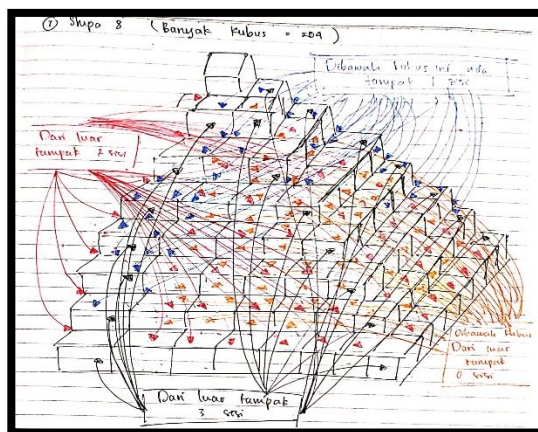 ① Stupa 8 (Banyak kubus = 204)
Dibawah kubus ini ada
tampak 1 sisi
Dari luar
tampak 2 sisi
Dibawah kubus
Dari luar
tampak
0 sisi
Dari luar tampak
3 sisi